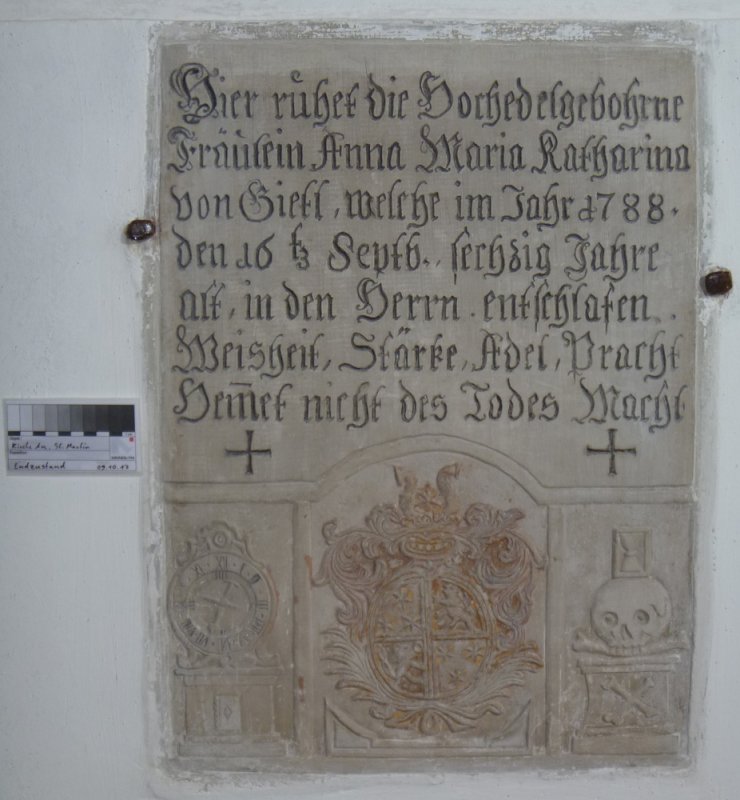 Hier ruhet die Hochedelgebohrne
Fräulein Anna Maria Katharina
von Gietl, welche im Jahr 1788.
den 16 Septb. sechzig Jahre
alt, in den Herrn entschlafen.
Weisheit, Stärke, Adel, Pracht
Hem̅et nicht des Todes Macht
Endzustand 09.10.17